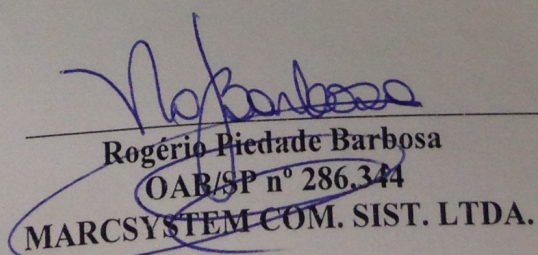 Rogério Piedade Barbosa
OAB/SP nº 286.344
MARCSYSTEM COM. SIST. LTDA.